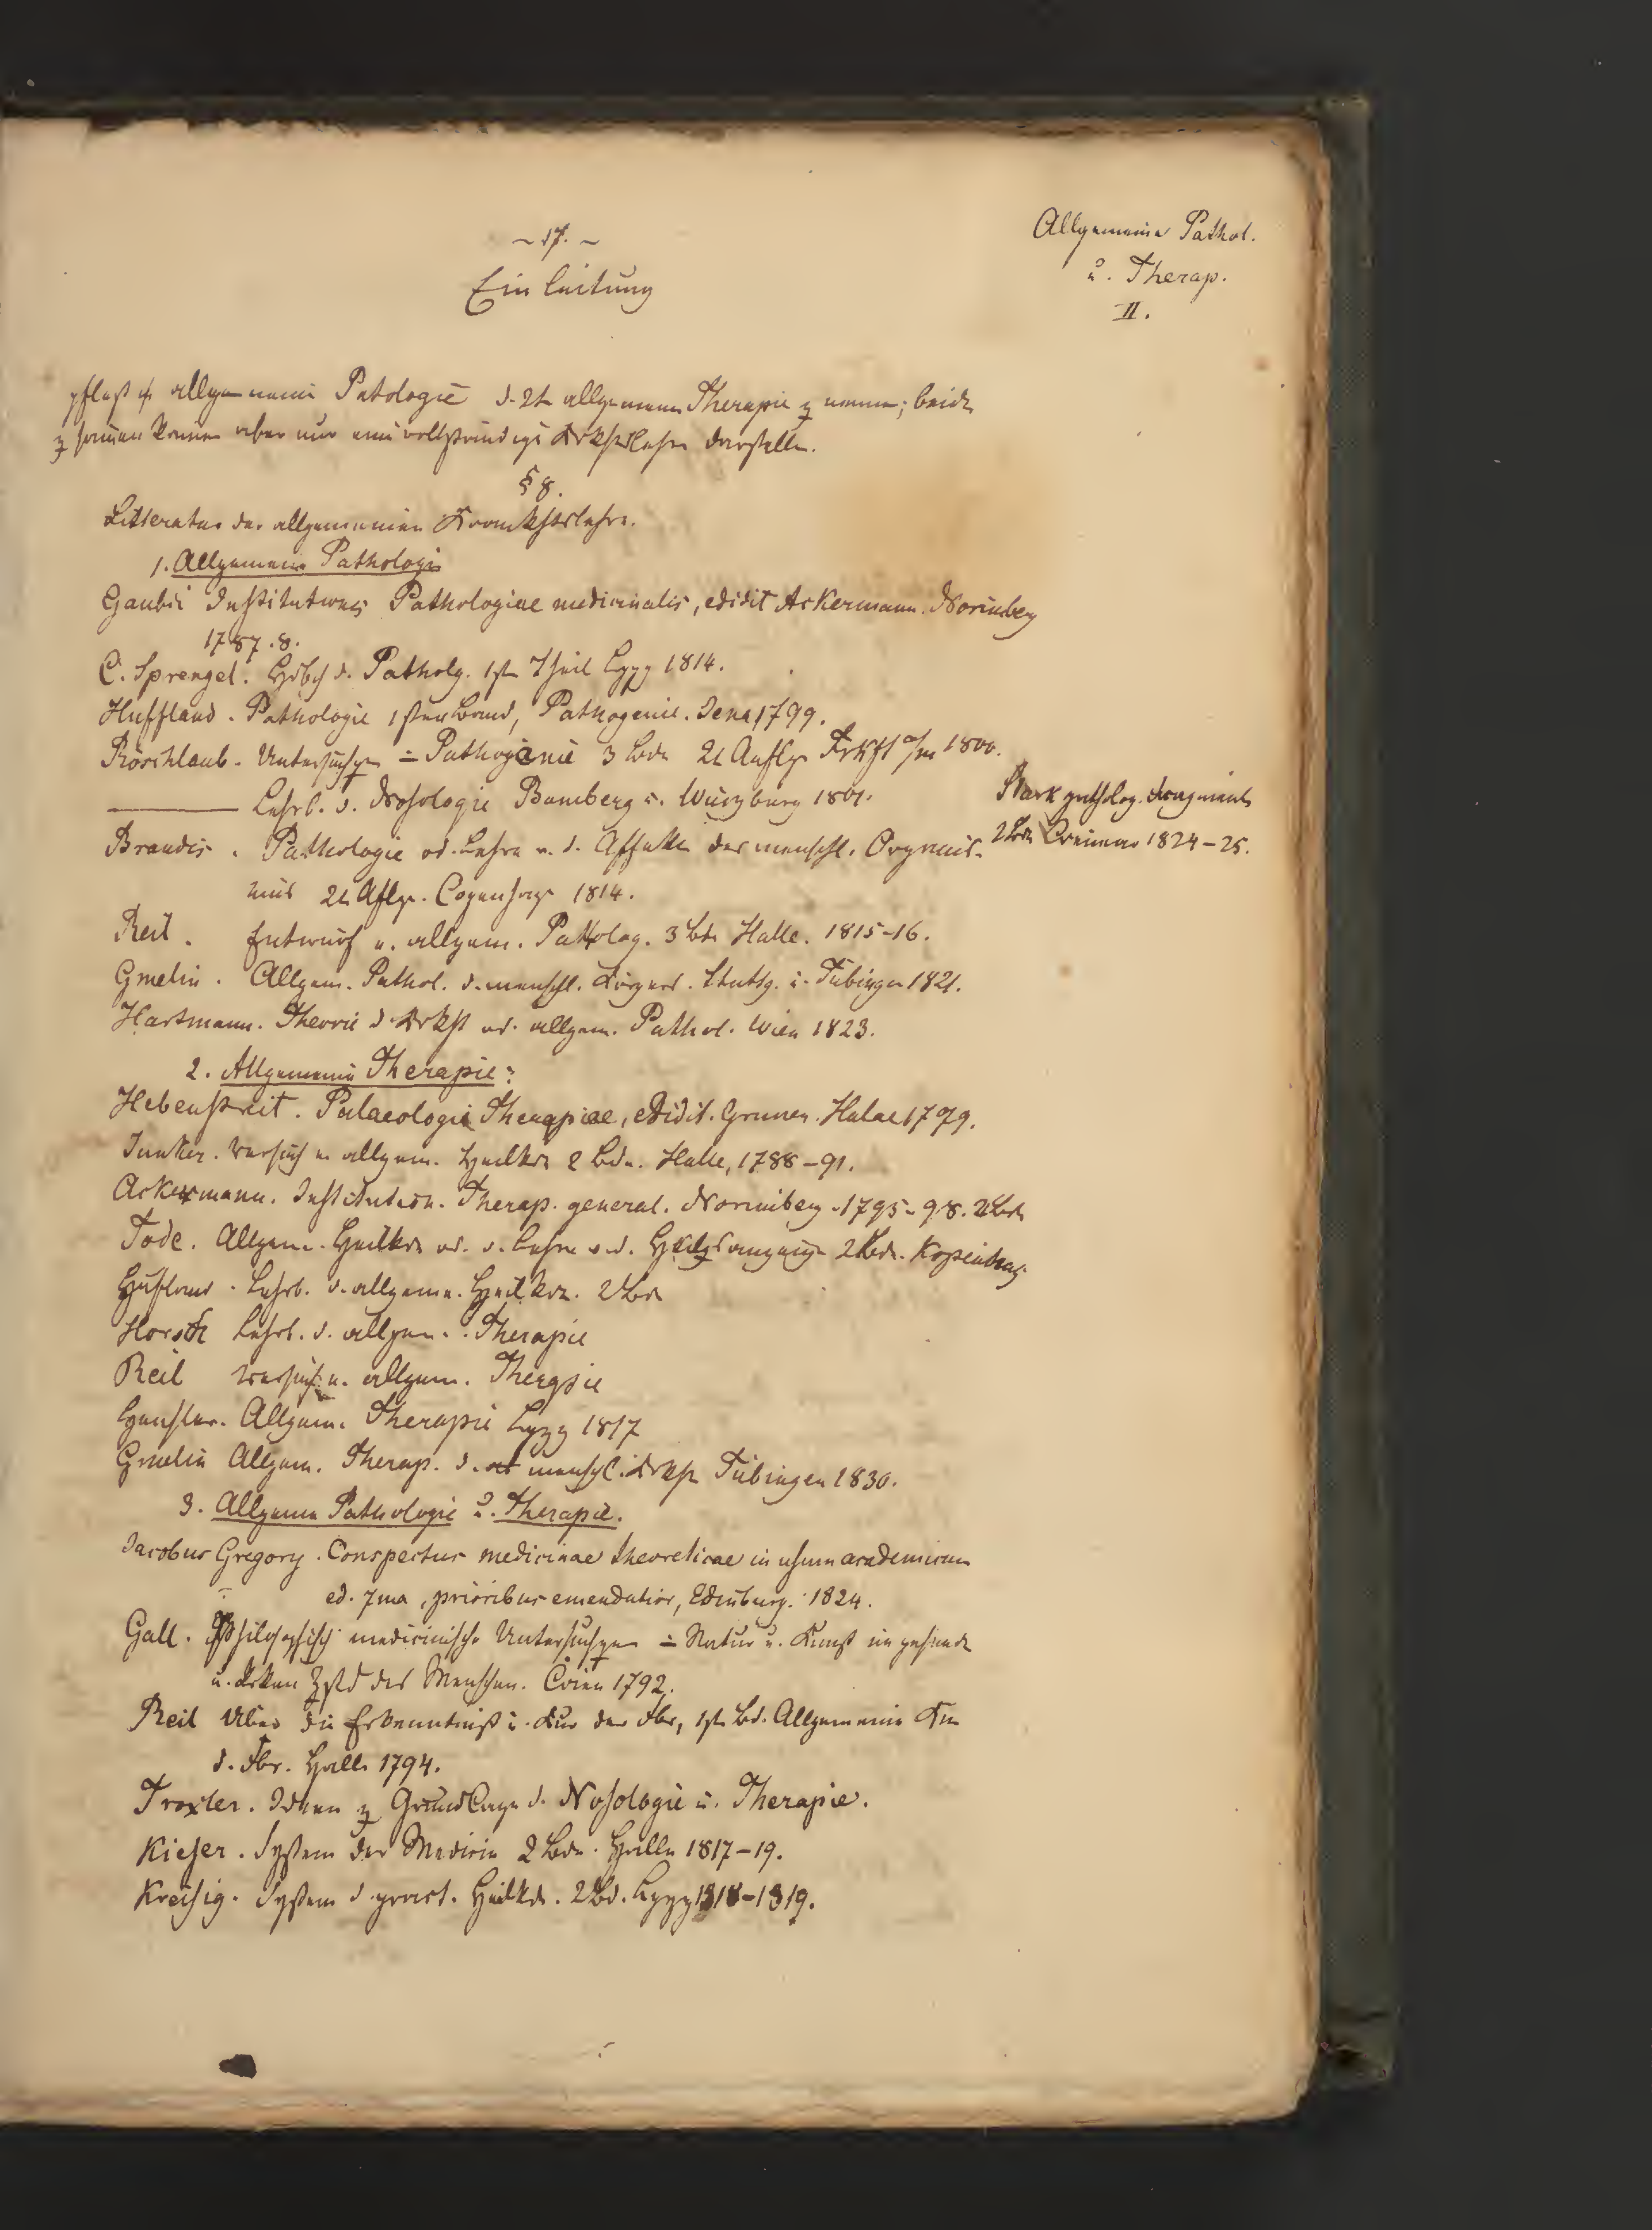 ~ 17. ~
Einleitung
Allgemeine Pathol.
u. Therap.
II.
pflegt allgemeine Patologie d. 2t allgemeine Therapie z nennen; beide
z samen konnen aber nur eine vollständige Krkhtslehre darstellen.
§ 8.
Litteratur der allgemeinen Krankhtslehre.
1. Allgemeine Pathologie
Gaubii Institutiones Pathologiae medicinalis, edidit Ackermann. Norimberg
1787. 8.
C. Sprengel. Hdbch d. Patholg. 1ster Theil Lpzg 1814.
Huffland. Pathologie 1ster Band, Pathogenie. Jena 1799.
Röschlaub. Untersuchgen Pathogenie 3 Bde 2te Auflge Frkft a/m 1800.
Lehrb. d. Nosologie Bamberg u. Würzburg 1801.
Stark patholog. Fragmente
2 Bde Weimar 1824-25.
Brandis. Pathologie od. Lehre v. d. Affekte des menschl. Organis-
mus 2te Aflge. Copenhage 1814.
Reil. Entwurf e. allgem. Patholog. 3 Bde Halle. 1815-16.
Gmelin. Allgem. Pathol. d. menschl. Körpers. Stuttg. u. Tübingen 1821.
Hartmann. Theorie d. Krkht od. allgem. Pathol. Wien 1823.
2. Allgemeine Therapie:
Hebenstreit. Palaeologie Therapiae, edidit. Gruner. Halae 1779.
Junker. Versuch e. allgem. Heilkde 2 Bde. Halle, 1788-91.
Ackermann. Institution. Therap. general. Norimberg. 1795-98. 2 Bde
Tode. Allgem. Heilkde od. d. Lehre v. d. 2 Bde. Kopenhag.
Hufland. Lehrb. d. allgem. Heilkde. 2 Bde
Horsch Lehrb. d. allgem. Therapie
Reil Versuch e. allgem. Therapie
Hensler. Allgem. Therapie Lpzg 1817
Gmelin Allgem. Therap. d. menschl. Krkht Tübingen 1830.
3. Allgemeine Pathologie u. Therapie.
Jacobus Gregory. Conspectus medicinae theoreticae in usum academicum
ed. 7ma, prioribus emendatior, Edinburg. 1824.
Gall. Philosophisch medicinische Untersuchgen Natur u. Kunst im gesunde
u. krken Zstd des Menschen. Wien 1792.
Reil Über die Erkenntniß u. Kur der Fbr, 1ster Bd. Allgemeine Kur
d. Fbr. Halle 1794.
Troxler. Ideen z Grundlage d. Nosologie u. Therapie.
Kieser. System der Medicin 2 Bde. Halle 1817-19.
Kreysig. System d. pract. Heilkde. 2 Bd. Lpzg 1818-1819.